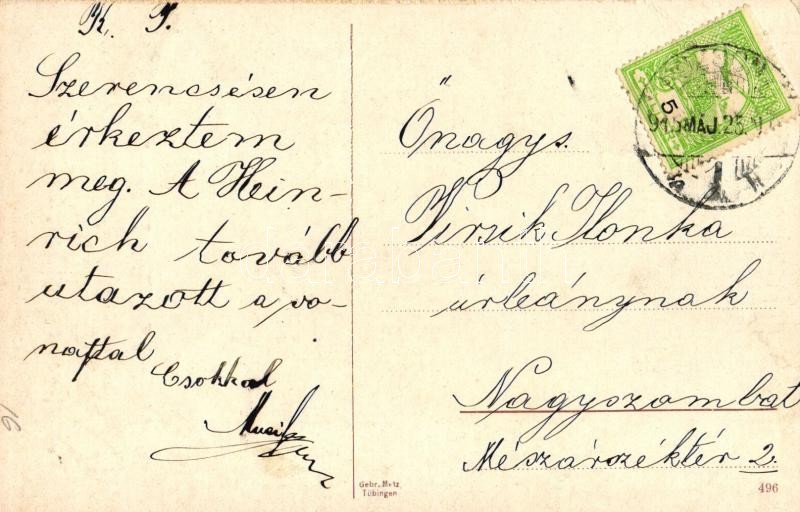 K. I.
Szerencsésen
érkeztem
meg. A Hein-
rich tovább
utazott a vo-
nattal
Csokkal
Önagys.
Virsik Ilonka
úrleánynak
Nagyszombat
Mészárszéktér 2.
5
915 MÁJ. 25.
Gebr. Metz
Tübingen
496